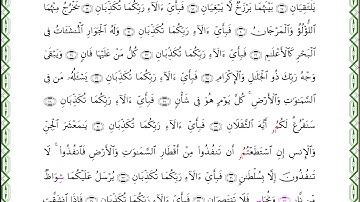 يَلْتَقِيَانِ بَيْنَهُمَا بَرْزَخٌ لَّا يَبْغِيَانِ فَبِأَيِّ ءَالَآءِ رَبِّكُمَا تُكَذِّبَانِ يَخْرُجُ مِنْهُمَا
ٱللُّؤْلُؤُ وَٱلْمَرْجَانُ فَبِأَيِّ ءَالَآءِ رَبِّكُمَا تُكَذِّبَانِ وَلَهُ ٱلْجَوَارِ ٱلْمُنشَـَٔاتُ فِي
ٱلْبَحْرِ كَٱلْأَعْلَٰمِ فَبِأَيِّ ءَالَآءِ رَبِّكُمَا تُكَذِّبَانِ كُلُّ مَنْ عَلَيْهَا فَانٍ وَيَبْقَىٰ
وَجْهُ رَبِّكَ ذُو ٱلْجَلَٰلِ وَٱلْإِكْرَامِ فَبِأَيِّ ءَالَآءِ رَبِّكُمَا تُكَذِّبَانِ يَسْـَٔلُهُۥ مَن فِي
ٱلسَّمَٰوَٰتِ وَٱلْأَرْضِ ۚ كُلَّ يَوْمٍ هُوَ فِي شَأْنٍ فَبِأَيِّ ءَالَآءِ رَبِّكُمَا تُكَذِّبَانِ
سَنَفْرُغُ لَكُمُۥ أَيُّهَ ٱلثَّقَلَانِ فَبِأَيِّ ءَالَآءِ رَبِّكُمَا تُكَذِّبَانِ يَٰمَعْشَرَ ٱلْجِنِّ
وَٱلْإِنسِ إِنِ ٱسْتَطَعْتُمُۥ أَن تَنفُذُوا۟ مِنْ أَقْطَارِ ٱلسَّمَٰوَٰتِ وَٱلْأَرْضِ فَٱنفُذُوا۟ ۚ لَا
تَنفُذُونَ إِلَّا بِسُلْطَٰنٍ فَبِأَيِّ ءَالَآءِ رَبِّكُمَا تُكَذِّبَانِ يُرْسَلُ عَلَيْكُمَا شِوَاظٌ
مِّن نَّارٍ وَنُحَاسٍ فَلَا تَنتَصِرَانِ فَبِأَيِّ ءَالَآءِ رَبِّكُمَا تُكَذِّبَانِ فَإِذَا ٱنشَقَّتِ